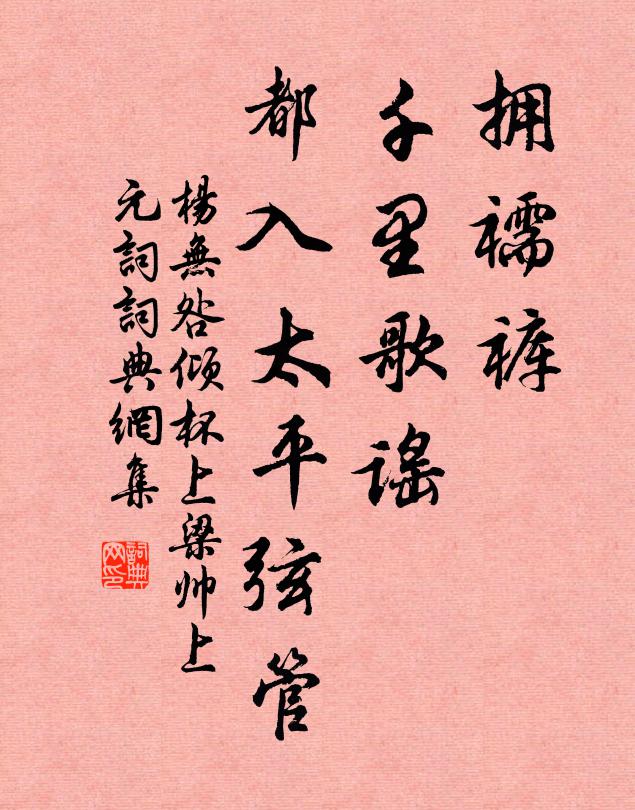 拥襦裤
千里歌谣
都入太平弦管
楊無咎倾杯上梁帅上
元詞詞典網集
詞典網印